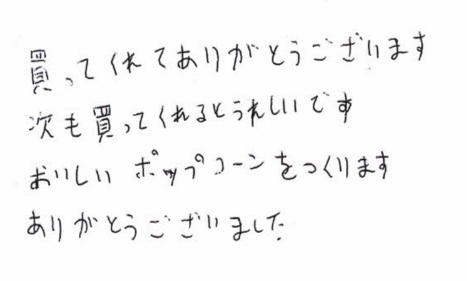 買ってくれてありがとうございます
次も買ってくれるとうれしいです
おいしい ポップコーンをつくります
ありがとうございました